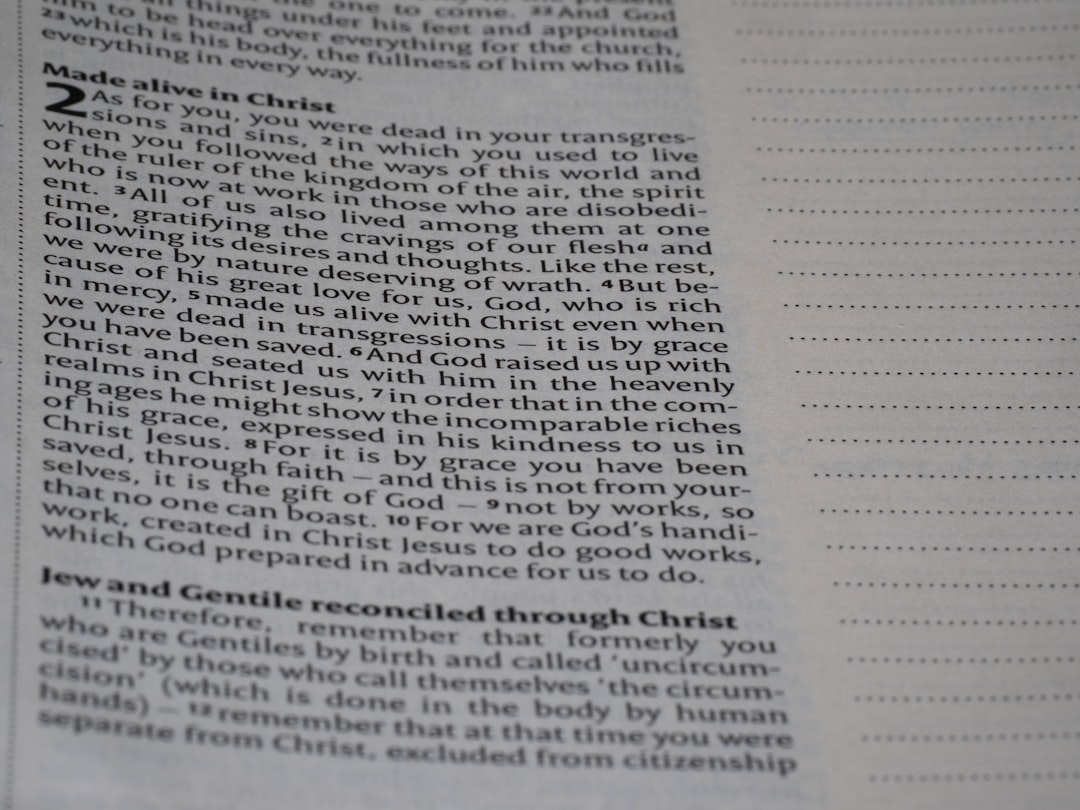 the one to come. 22 And God
things under his feet and appointed
him to be head over everything for the church,
23 which is his body, the fullness of him who fills
everything in every way.
Made alive in Christ
2 As for you, you were dead in your transgres-
sions and sins, 2 in which you used to live
when you followed the ways of this world and
of the ruler of the kingdom of the air, the spirit
who is now at work in those who are disobedi-
ent. 3 All of us also lived among them at one
time, gratifying the cravings of our flesh a and
following its desires and thoughts. Like the rest,
we were by nature deserving of wrath. 4 But be-
cause of his great love for us, God, who is rich
in mercy, 5 made us alive with Christ even when
we were dead in transgressions – it is by grace
you have been saved. 6 And God raised us up with
Christ and seated us with him in the heavenly
realms in Christ Jesus, 7 in order that in the com-
ing ages he might show the incomparable riches
of his grace, expressed in his kindness to us in
Christ Jesus. 8 For it is by grace you have been
saved, through faith – and this is not from your-
selves, it is the gift of God – 9 not by works, so
that no one can boast. 10 For we are God's handi-
work, created in Christ Jesus to do good works,
which God prepared in advance for us to do.
Jew and Gentile reconciled through Christ
11 Therefore, remember that formerly you
who are Gentiles by birth and called 'uncircum-
cised' by those who call themselves 'the circum-
cision' (which is done in the body by human
hands) – 12 remember that at that time you were
separate from Christ, excluded from citizenship